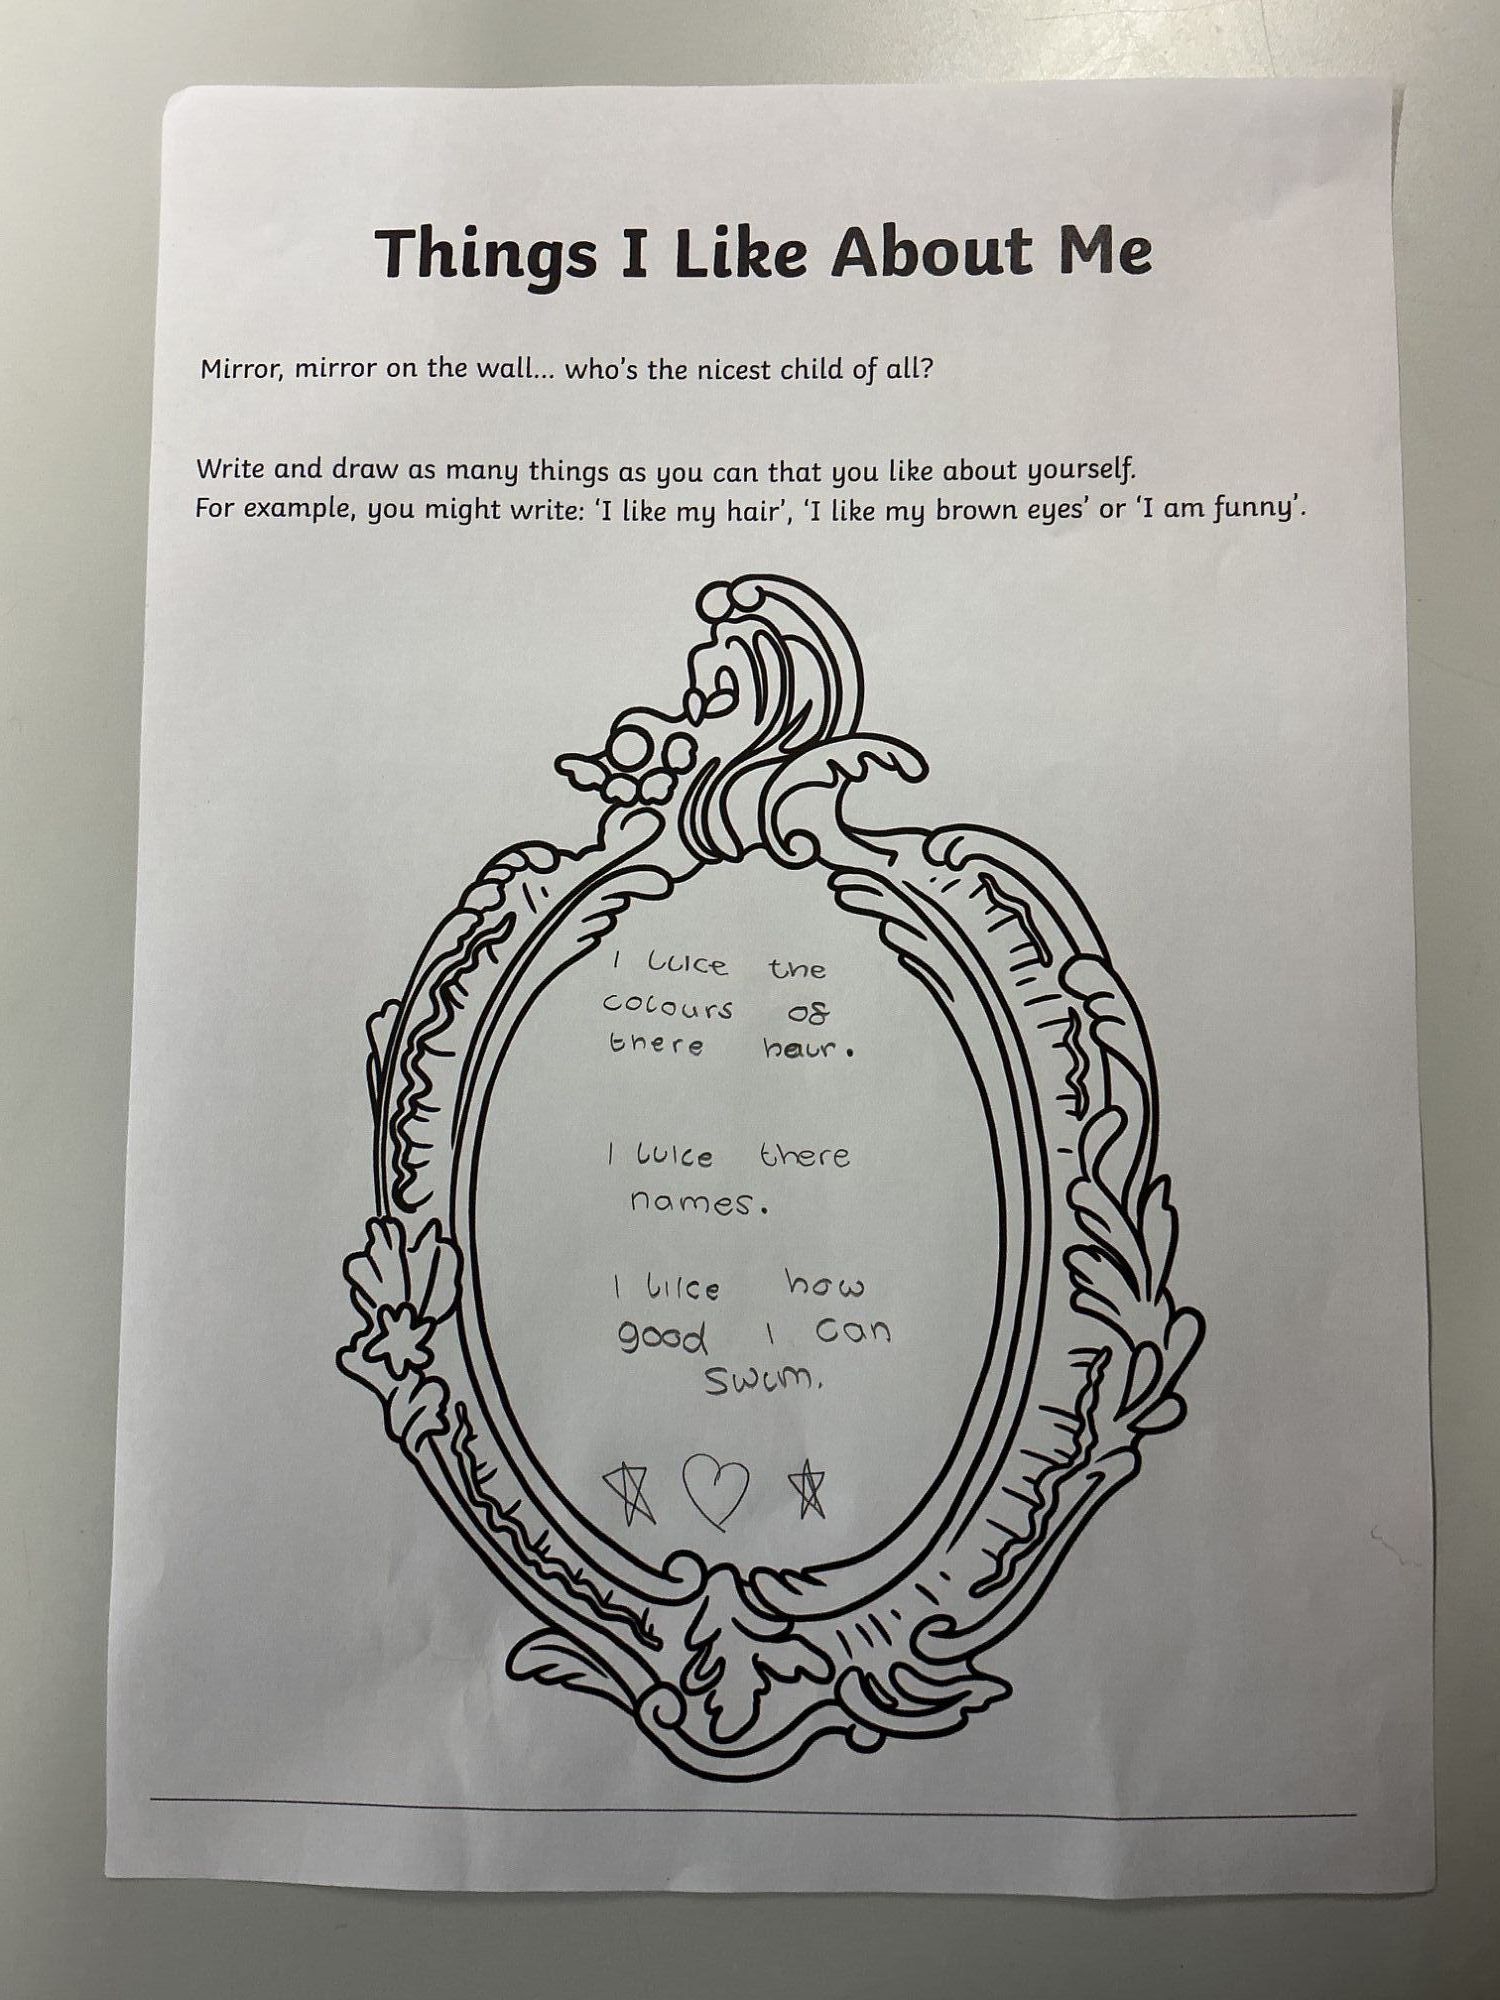 Things I Like About Me
Mirror, mirror on the wall... who's the nicest child of all?
Write and draw as many things as you can that you like about yourself.
For example, you might write: 'I like my hair', 'I like my brown eyes' or 'I am funny'.
I like the
colours of
there hair.
I like there
names.
I like how
good I can
swim.